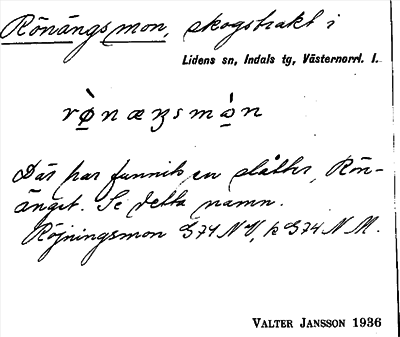 Rönängsmon, skogstrakt i
Lidens sn, Indals tg, Västernorrl. l.
rø̀næŋsmòn
Där har funnits en slåtter, Rön-
änget. Se detta namn.
Röjningsmon G74 NV, k G74 NM.
VALTER JANSSON 1936